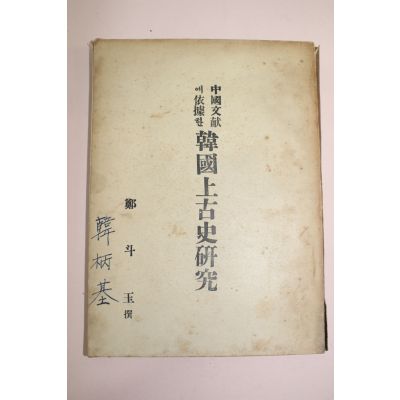 中國文献
에依據한
韓國上古史硏究
鄭斗玉撰
韓柄基